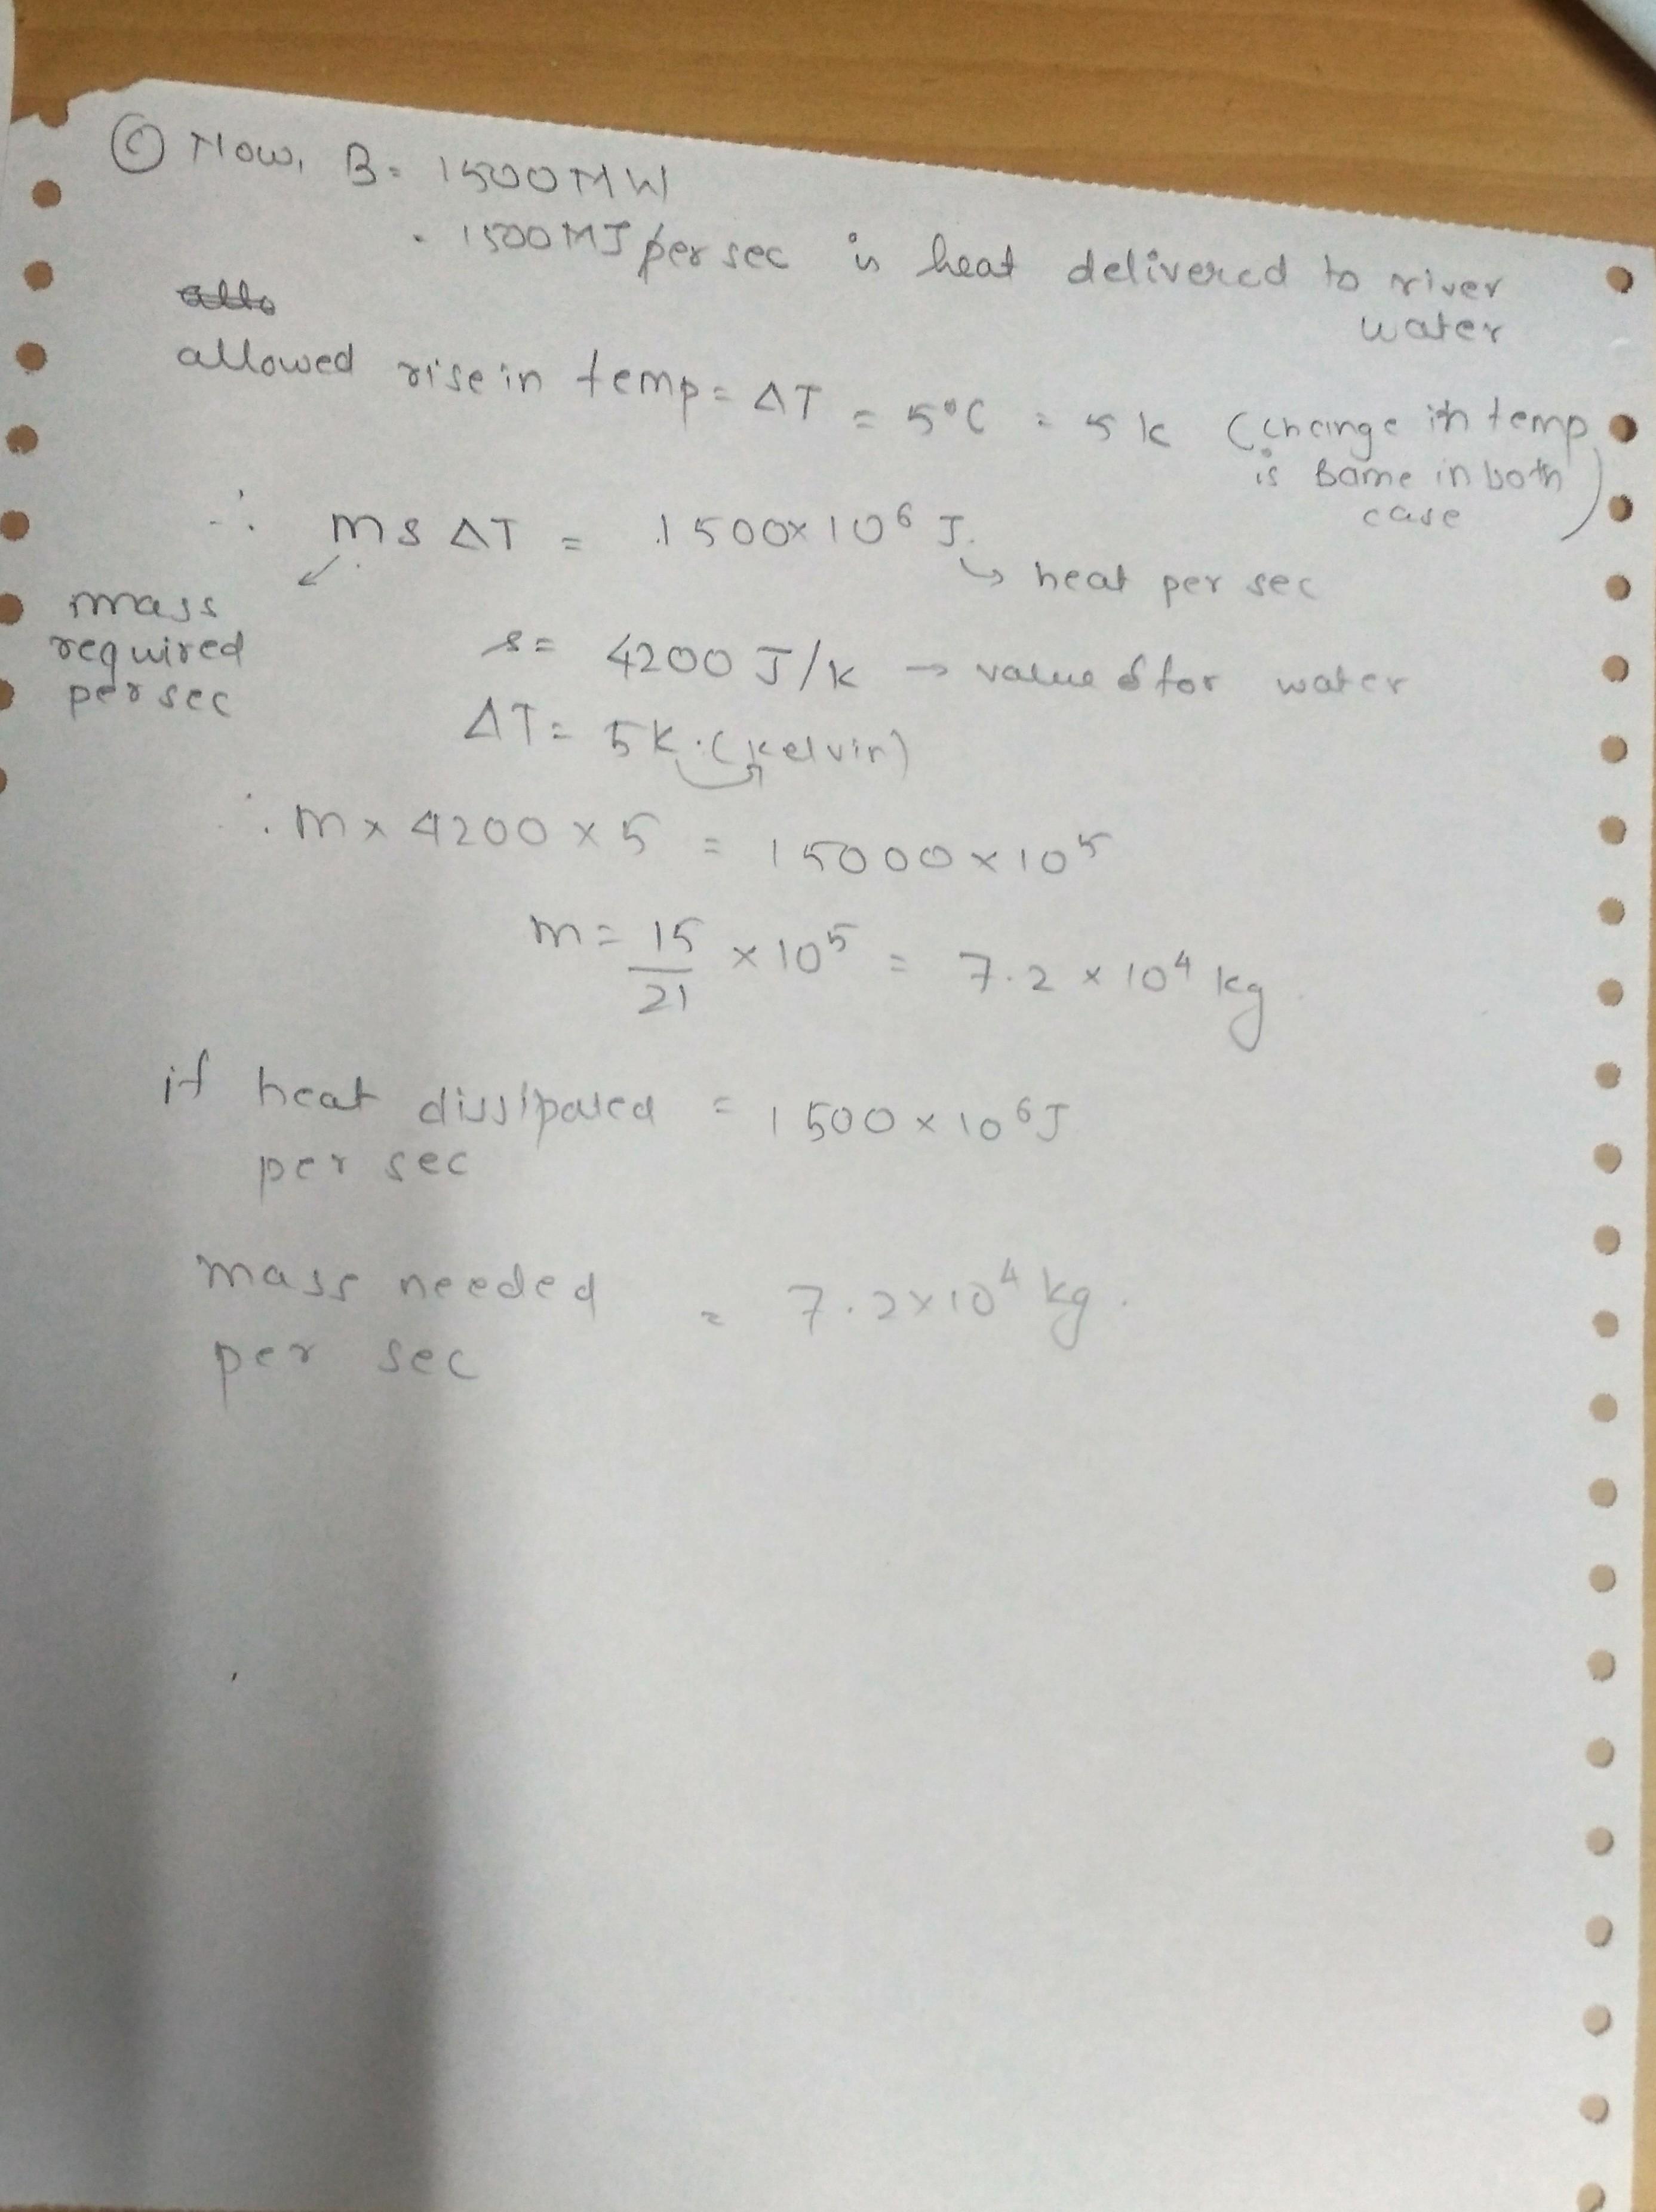 Ⓒ Now, B = 1500 MW
= 1500 MJ per sec is heat delivered to river
water
allowed rise in temp = ΔT = 5°C = 5 k (change in temp
is same in both
case)
∴ m s ΔT = 1500×10⁶ J.
↳ heat per sec
mass
required
per sec
s = 4200 J/K → value of for water
ΔT = 5K. (kelvin)
∴ m × 4200 × 5 = 15000 × 10⁵
m = 15/21 × 10⁵ = 7.2 × 10⁴ kg
if heat dissipated = 1500 × 10⁶ J
per sec
mass needed = 7.2×10⁴ kg.
per sec